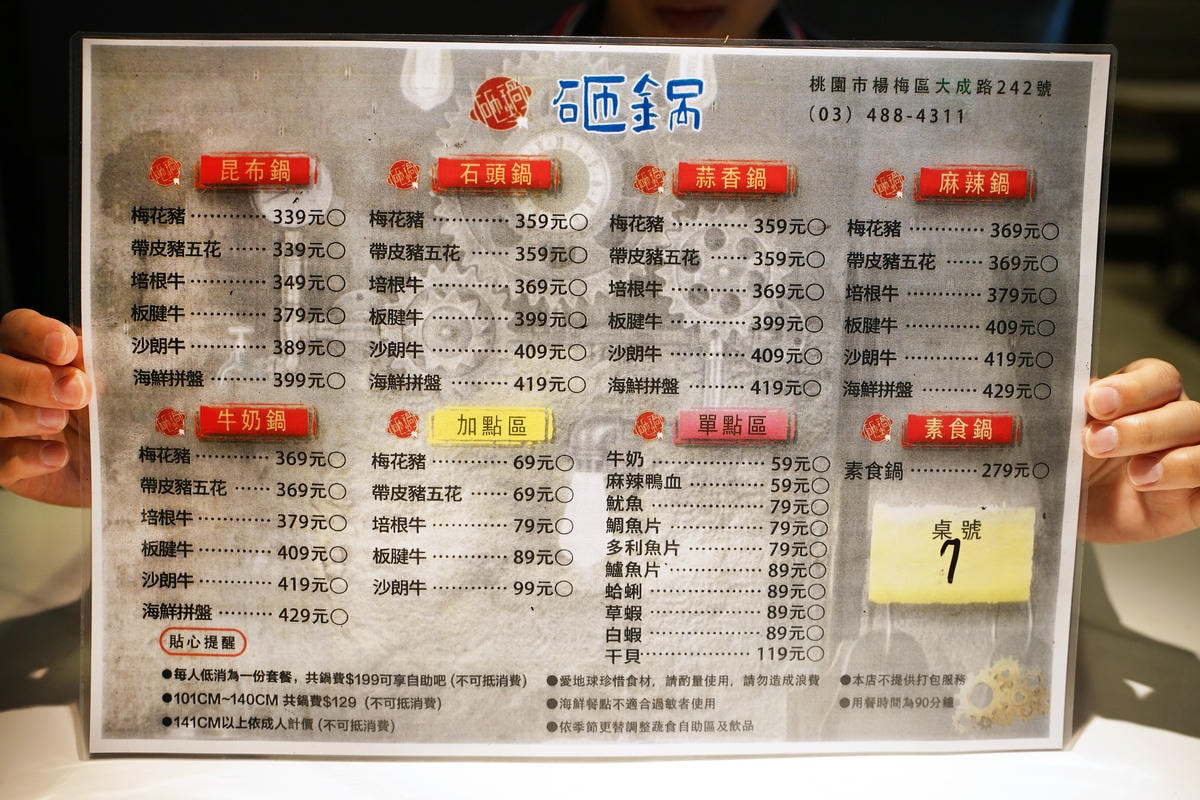 砸鍋
砸鍋
桃園市楊梅區大成路242號
(03) 488-4311
昆布鍋
梅花豬 339元○
帶皮豬五花 339元○
培根牛 349元○
板腱牛 379元○
沙朗牛 389元○
海鮮拼盤 399元○
石頭鍋
梅花豬 359元○
帶皮豬五花 359元○
培根牛 369元○
板腱牛 399元○
沙朗牛 409元○
海鮮拼盤 419元○
蒜香鍋
梅花豬 359元○
帶皮豬五花 359元○
培根牛 369元○
板腱牛 399元○
沙朗牛 409元○
海鮮拼盤 419元○
麻辣鍋
梅花豬 369元○
帶皮豬五花 369元○
培根牛 379元○
板腱牛 409元○
沙朗牛 419元○
海鮮拼盤 429元○
牛奶鍋
梅花豬 369元○
帶皮豬五花 369元○
培根牛 379元○
板腱牛 409元○
沙朗牛 419元○
海鮮拼盤 429元○
加點區
梅花豬 69元○
帶皮豬五花 69元○
培根牛 79元○
板腱牛 89元○
沙朗牛 99元○
單點區
牛奶 59元○
麻辣鴨血 59元○
魷魚 79元○
鯛魚片 79元○
多利魚片 79元○
鱸魚片 89元○
蛤蜊 89元○
草蝦 89元○
白蝦 89元○
干貝 119元○
素食鍋
素食鍋 279元○
桌號
7
貼心提醒
●每人低消為一份套餐，共鍋費$199可享自助吧 (不可抵消費)
●101CM~140CM 共鍋費$129 (不可抵消費)
●141CM以上依成人計價 (不可抵消費)
●愛地球珍惜食材，請酌量使用，請勿造成浪費
●海鮮餐點不適合過敏者使用
●依季節更替調整蔬食自助區及飲品
●本店不提供打包服務
●用餐時間為90分鐘